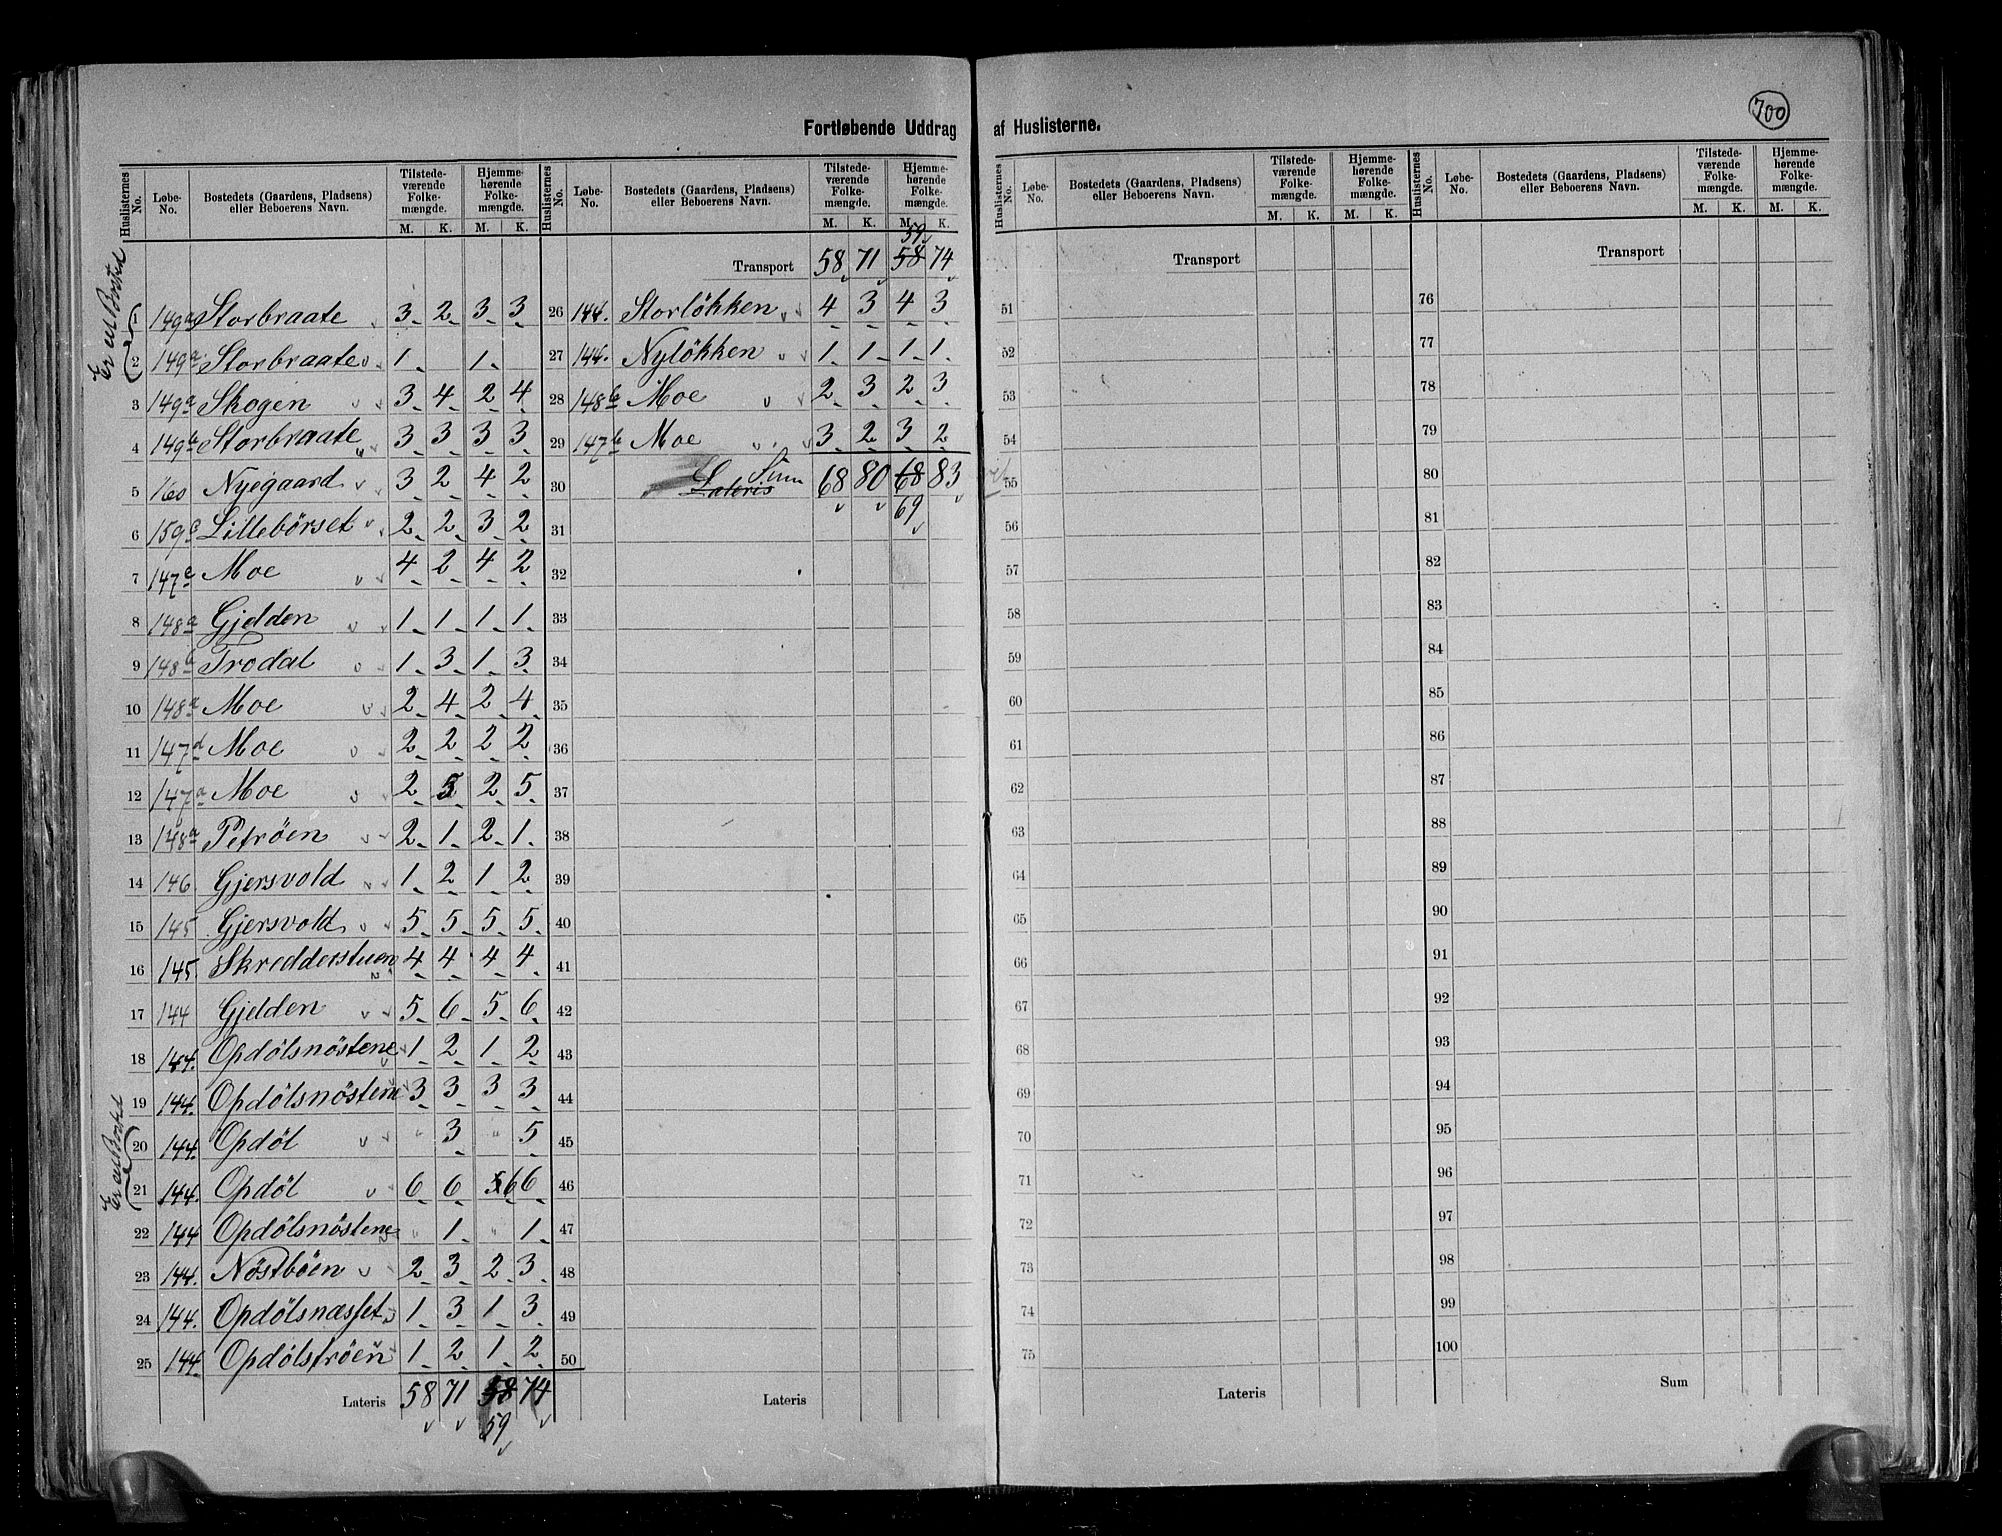 700
Fortløbende Uddrag af Huslisterne.
Huslisternes No. | Løbe-No. | Bostedets (Gaardens, Pladsens) eller Beboerens Navn. | Tilstedeværende Folkemængde. M. K. | Hjemmehørende Folkemængde. M. K.
Er et Bosted
1 149a Storbraate 3 2 3 3
2 149a Storbraate 1 1
3 149a Skogen 3 4 2 4
4 149b Storbraate 3 3 3 3
5 160 Nyegaard 3 2 4 2
6 159c Lillebörset 2 2 3 2
7 147c Moe 4 2 4 2
8 148a Gjelden 1 1 1 1
9 148b Trodal 1 3 1 3
10 148a Moe 2 4 2 4
11 147d Moe 2 2 2 2
12 147a Moe 2 5 2 5
13 148a Petröen 2 1 2 1
14 146 Gjersvold 1 2 1 2
15 145 Gjersvold 5 5 5 5
16 145 Skredderstuen 4 4 4 4
17 144 Gjelden 5 6 5 6
18 144. Opdölsnöstene 1 2 1 2
19 144. Opdölsnöstene 3 3 3 3
Er et Bosted
20 144. Opdöl " 3 " 5
21 144. Opdöl 6 6 5 6 6
22 144 Opdölsnöstene " 1 " 1
23 144. Nöstböen 2 3 2 3
24 144. Opdölsnæsset 1 3 1 3
25 144. Opdölströen 1 2 1 2
Lateris 58 71 58 74
59
Huslisternes No. | Løbe-No. | Bostedets (Gaardens, Pladsens) eller Beboerens Navn. | Tilstedeværende Folkemængde. M. K. | Hjemmehørende Folkemængde. M. K.
59
Transport 58 71 58 74
26 144. Storlökken 4 3 4 3
27 144. Nylökken 1 1 1 1
28 148b Moe 2 3 2 3
29 147b Moe 3 2 3 2
30 Lateris Sum 68 80 68 83
69
31
32
33
34
35
36
37
38
39
40
41
42
43
44
45
46
47
48
49
50
Lateris
Huslisternes No. | Løbe-No. | Bostedets (Gaardens, Pladsens) eller Beboerens Navn. | Tilstedeværende Folkemængde. M. K. | Hjemmehørende Folkemængde. M. K.
Transport
51
52
53
54
55
56
57
58
59
60
61
62
63
64
65
66
67
68
69
70
71
72
73
74
75
Lateris
Huslisternes No. | Løbe-No. | Bostedets (Gaardens, Pladsens) eller Beboerens Navn. | Tilstedeværende Folkemængde. M. K. | Hjemmehørende Folkemængde. M. K.
Transport
76
77
78
79
80
81
82
83
84
85
86
87
88
89
90
91
92
93
94
95
96
97
98
99
100
Sum